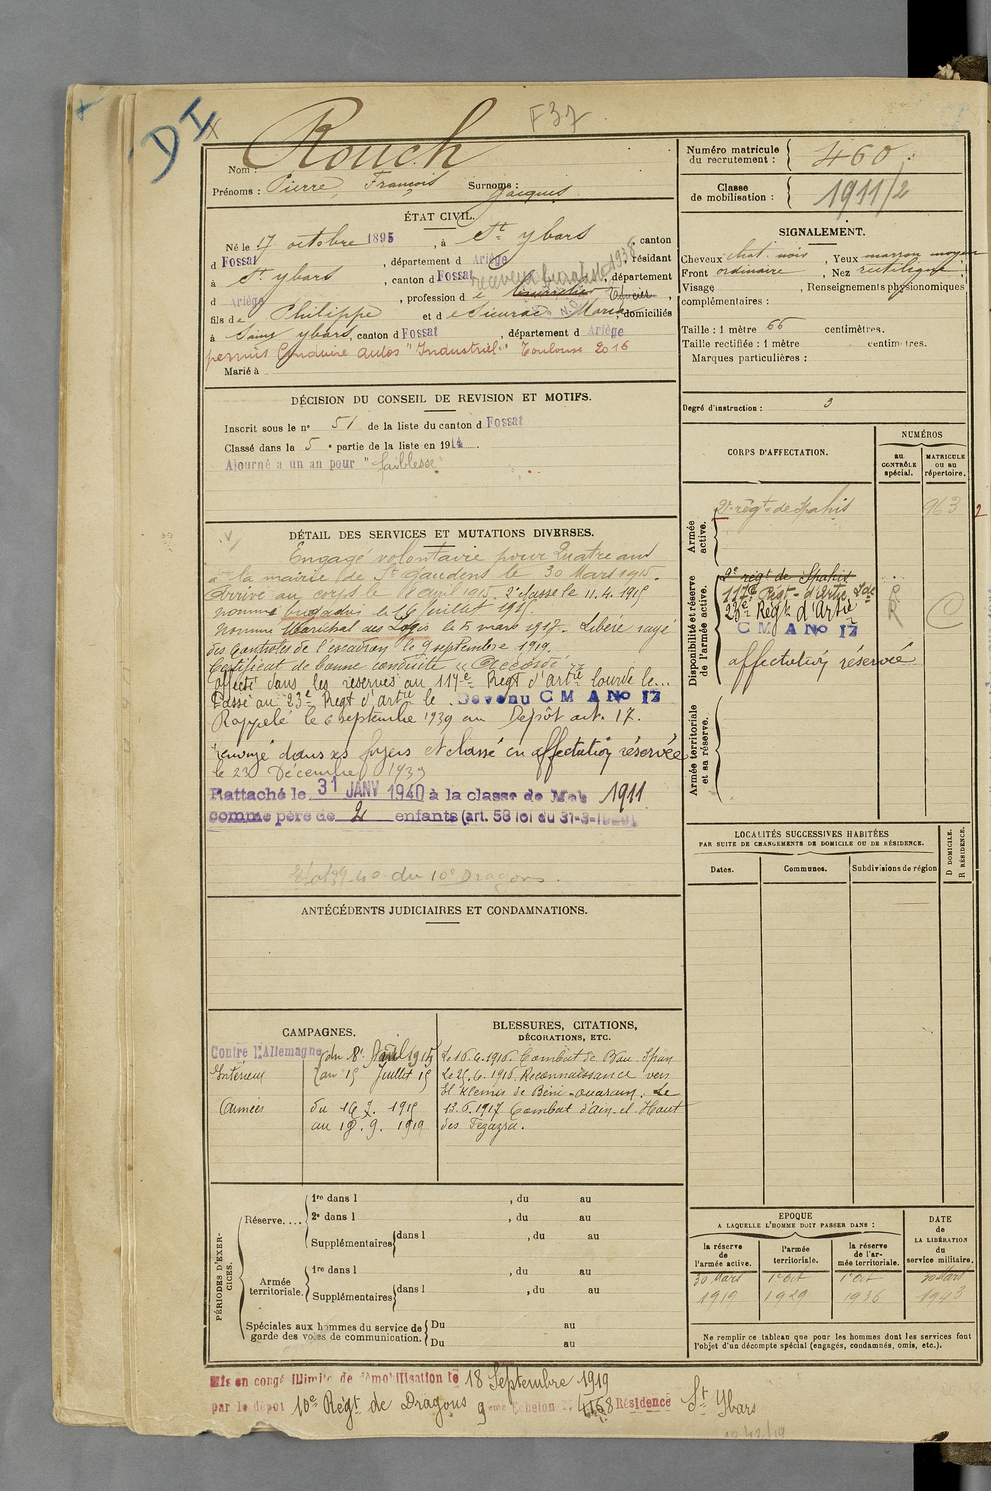 DI
F 37
Nom : Rouch
Prénoms : Pierre, François Surnoms : Jacques
ÉTAT CIVIL.
Né le 17 octobre 1895, à St Ybars, canton
d Fossat, département d Ariège, résidant
à St Ybars, canton d Fossat, département
d Ariège, profession d
fils de Philippe et d e Sieurac Maria, domiciliés
à Saint Ybars, canton d Fossat, département d Ariège
permis Conduire autos "Industriel" Toulouse 2016
Marié à
DÉCISION DU CONSEIL DE REVISION ET MOTIFS.
Inscrit sous le n° 51 de la liste du canton d Fossat
Classé dans la 5e partie de la liste en 1914.
Ajourné a un an pour "faiblesse"
DÉTAIL DES SERVICES ET MUTATIONS DIVERSES.
Engagé volontaire pour Quatre ans
à la mairie de St Gaudens le 30 Mars 1915.
Arrivé au corps le avril 1915. 2e classe le 11.4.1915
nommé brigadier le 16 juillet 1915.
Nommé Maréchal des Logis le 5 mars 1917. Libéré rayé
des Controles de l'escadron le 9 septembre 1919.
Certificat de bonne conduite "Accordé"
Affecté dans les réserves au 117e Regt d'artie lourde le...
Passé au 23e Regt d'artie le Devenu C M A No 17
Rappelé le 6 septembre 1939 au Dépôt art. 17.
Renvoyé dans ses foyers et classé en affectation réservée
le 23 Décembre 1939
Rattaché le 31 JANV 1940 à la classe de Mob 1911
comme père de 2 enfants (art. 58 loi du 31-3-1928)
du 10e Dragons.
ANTÉCÉDENTS JUDICIAIRES ET CONDAMNATIONS.
CAMPAGNES.
Contre l'Allemagne du 8 Avril 1915
Intérieur au 15 Juillet 15
Armées du 16 7. 1915
au 18. 9. 1919
BLESSURES, CITATIONS,
DÉCORATIONS, ETC.
Le 16.4.1916. Combat de Bou
Le 25.6.1916 Reconnaissance vers
El Klemis de Beni-ouarain. Le
13.6.1917 Combat d'ain el Haut
des Tegazza.
PÉRIODES D'EXERCICES.
Réserve....
1re dans l , du au
2e dans l , du au
Supplémentaires dans l , du au
Armée territoriale.
1re dans l , du au
Supplémentaires dans l , du au
Spéciales aux hommes du service de
garde des voies de communication.
Du au
Du au
Numéro matricule
du recrutement : 460
Classe
de mobilisation : 1911/2
SIGNALEMENT.
Cheveux chat. noir, Yeux marron moyen
Front ordinaire, Nez rectiligne,
Visage , Renseignements physionomiques
complémentaires :
Taille : 1 mètre 66 centimètres.
Taille rectifiée : 1 mètre centimètres.
Marques particulières :
Degré d'instruction : 3
CORPS D'AFFECTATION.
NUMÉROS
au
CONTRÔLE
spécial.
MATRICULE
ou au
répertoire.
Armée
active.
2e régt de Spahis 963
Disponibilité et réserve
de l'armée active.
2e régt de Spahis
117e Régt d'Artie Lde
23e Regt d'Artie
C M A No 17
affectation réservée
Armée territoriale
et sa réserve.
LOCALITÉS SUCCESSIVES HABITÉES
PAR SUITE DE CHANGEMENTS DE DOMICILE OU DE RÉSIDENCE.
Dates. Communes. Subdivisions de région
D DOMICILE.
R RÉSIDENCE.
EPOQUE
A LAQUELLE L'HOMME DOIT PASSER DANS :
la réserve
de
l'armée active.
l'armée
territoriale.
la réserve
de l'armée territoriale.
DATE
de
LA LIBÉRATION
du
service militaire.
30 Mars 1er Oct 1er Oct 30 Mars
1919 1929 1936 1943
Ne remplir ce tableau que pour les hommes dont les services font
l'objet d'un décompte spécial (engagés, condamnés, omis, etc.).
Mis en congé illimité de démobilisation le 18 Septembre 1919
par le dépôt 10e Régt de Dragons 9eme Echelon n° 4168 Résidence St Ybars